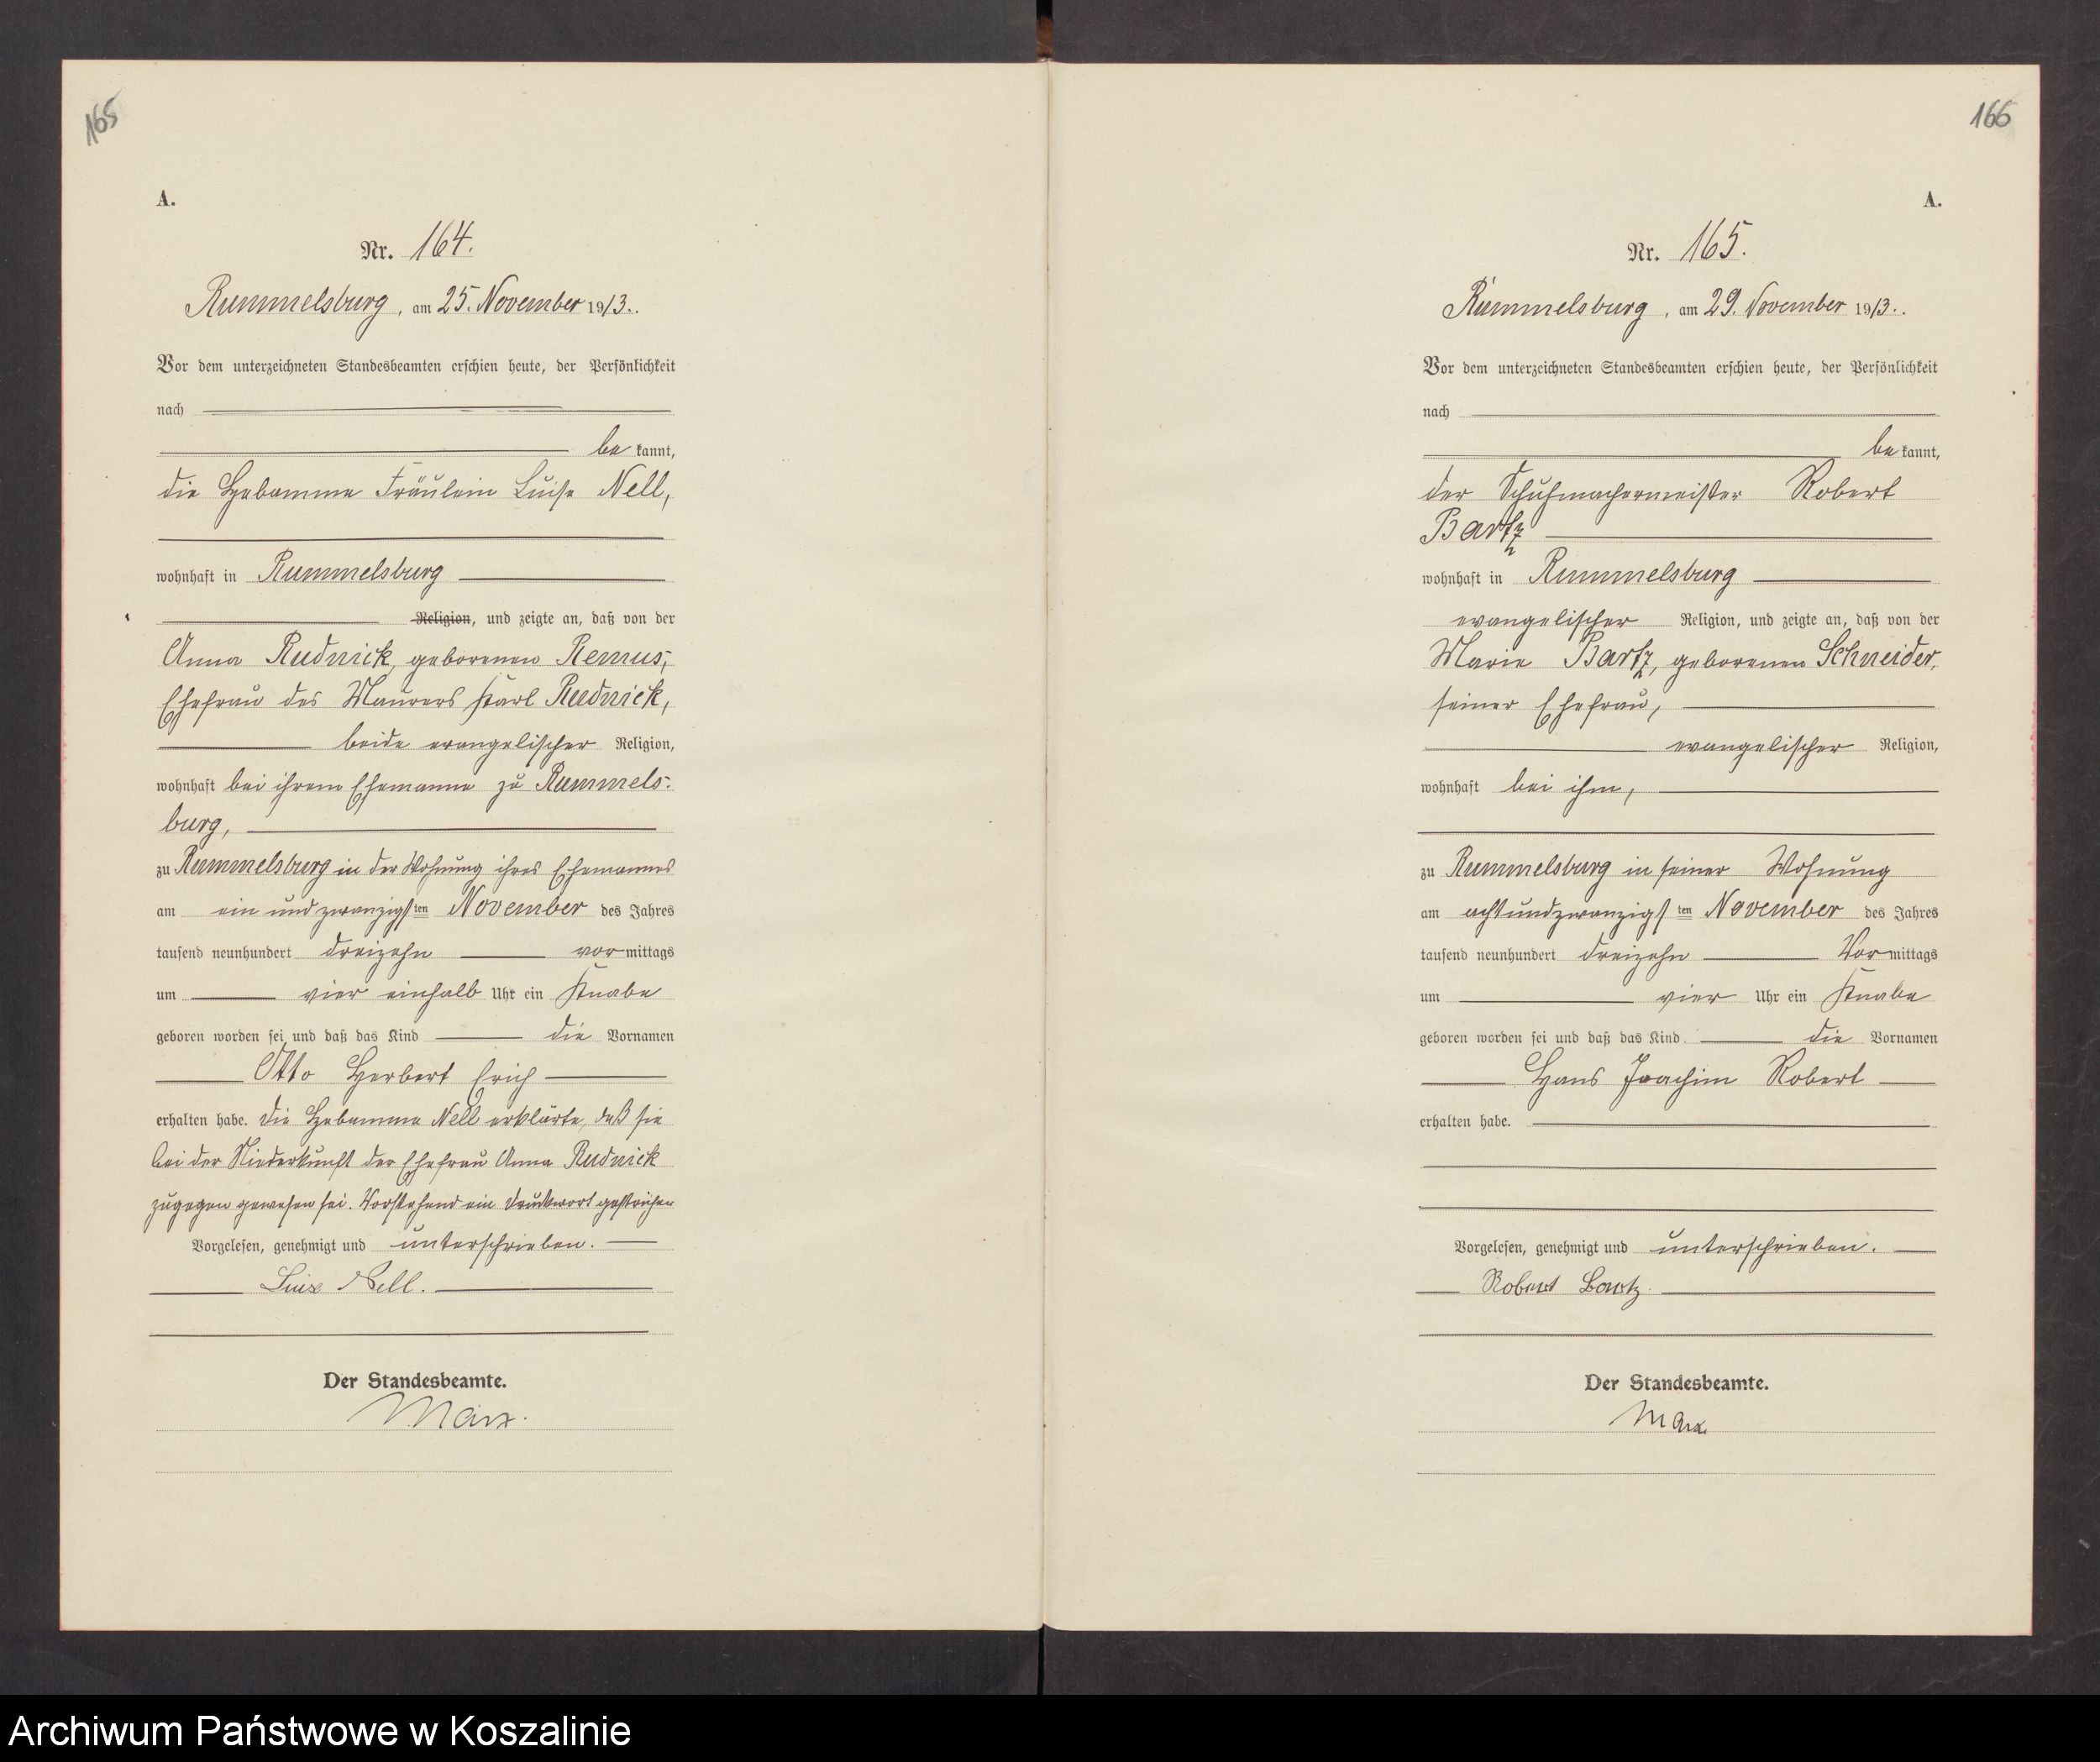 165
A.
Nr. 164.
Rummelsburg, am 25. November 1913..
Vor dem unterzeichneten Standesbeamten erschien heute, der Persönlichkeit
nach
be kannt,
die Hebamme Fräulein Luise Nell,
wohnhaft in Rummelsburg
Religion, und zeigte an, daß von der
Anna Rudnick, geborenen Remus,
Ehefrau des Maurers Karl Rudnick,
beide evangelischer Religion,
wohnhaft bei ihrem Ehemanne zu Rummels-
burg,
zu Rummelsburg in der Wohnung ihres Ehemannes
am ein und zwanzigsten November des Jahres
tausend neunhundert dreizehn vormittags
um vier einhalb Uhr ein Knabe
geboren worden sei und daß das Kind die Vornamen
Otto Herbert Erich
erhalten habe. Die Hebamme Nell erklärte, daß sie
bei der Niederkunft der Ehefrau Anna Rudnick
zugegen gewesen sei. Vorstehend ein Druckwort gestrichen
Vorgelesen, genehmigt und unterschrieben.
Luise Nell.
Der Standesbeamte.
Marx.
166
A.
Nr. 165.
Rummelsburg, am 29. November 1913..
Vor dem unterzeichneten Standesbeamten erschien heute, der Persönlichkeit
nach
be kannt,
der Schuhmachermeister Robert
Bartz
wohnhaft in Rummelsburg
evangelischer Religion, und zeigte an, daß von der
Marie Bartz, geborenen Schneider,
seiner Ehefrau,
evangelischer Religion,
wohnhaft bei ihm,
zu Rummelsburg in seiner Wohnung
am achtundzwanzigsten November des Jahres
tausend neunhundert dreizehn Vormittags
um vier Uhr ein Knabe
geboren worden sei und daß das Kind die Vornamen
Hans Joachim Robert
erhalten habe.
Vorgelesen, genehmigt und unterschrieben.
Robert Bartz
Der Standesbeamte.
Marx
Archiwum Państwowe w Koszalinie